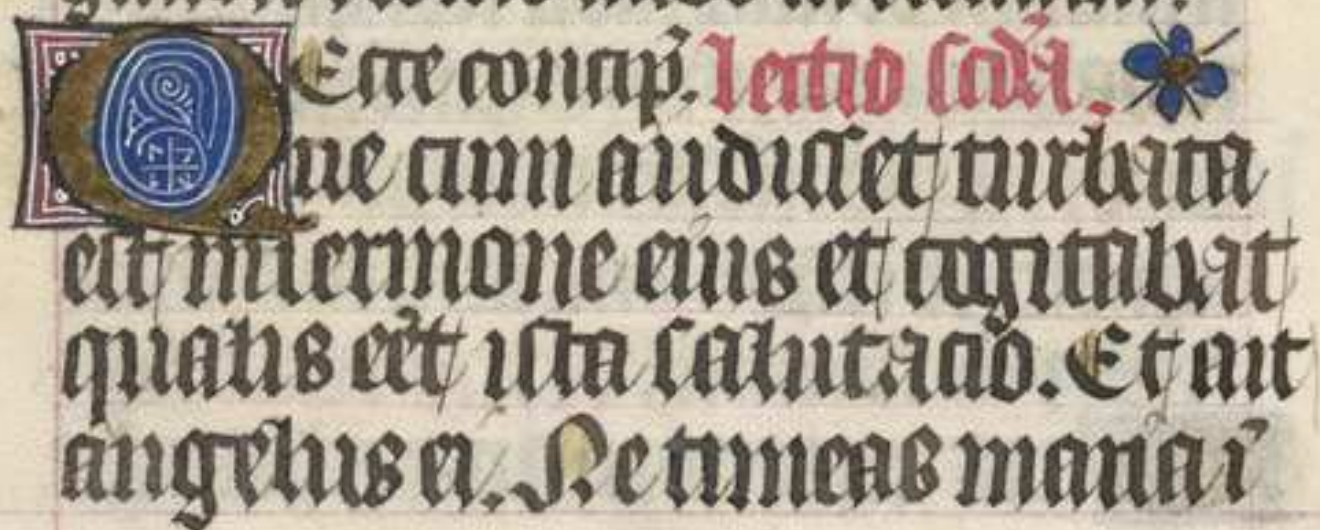 Ecce concip̃. lectio scd̃a.
Que cum audisset turbata
est in sermone eius et cogitabat
qualis eēt ista salutacio. Et ait
angelus ei. Ne timeas maria ī